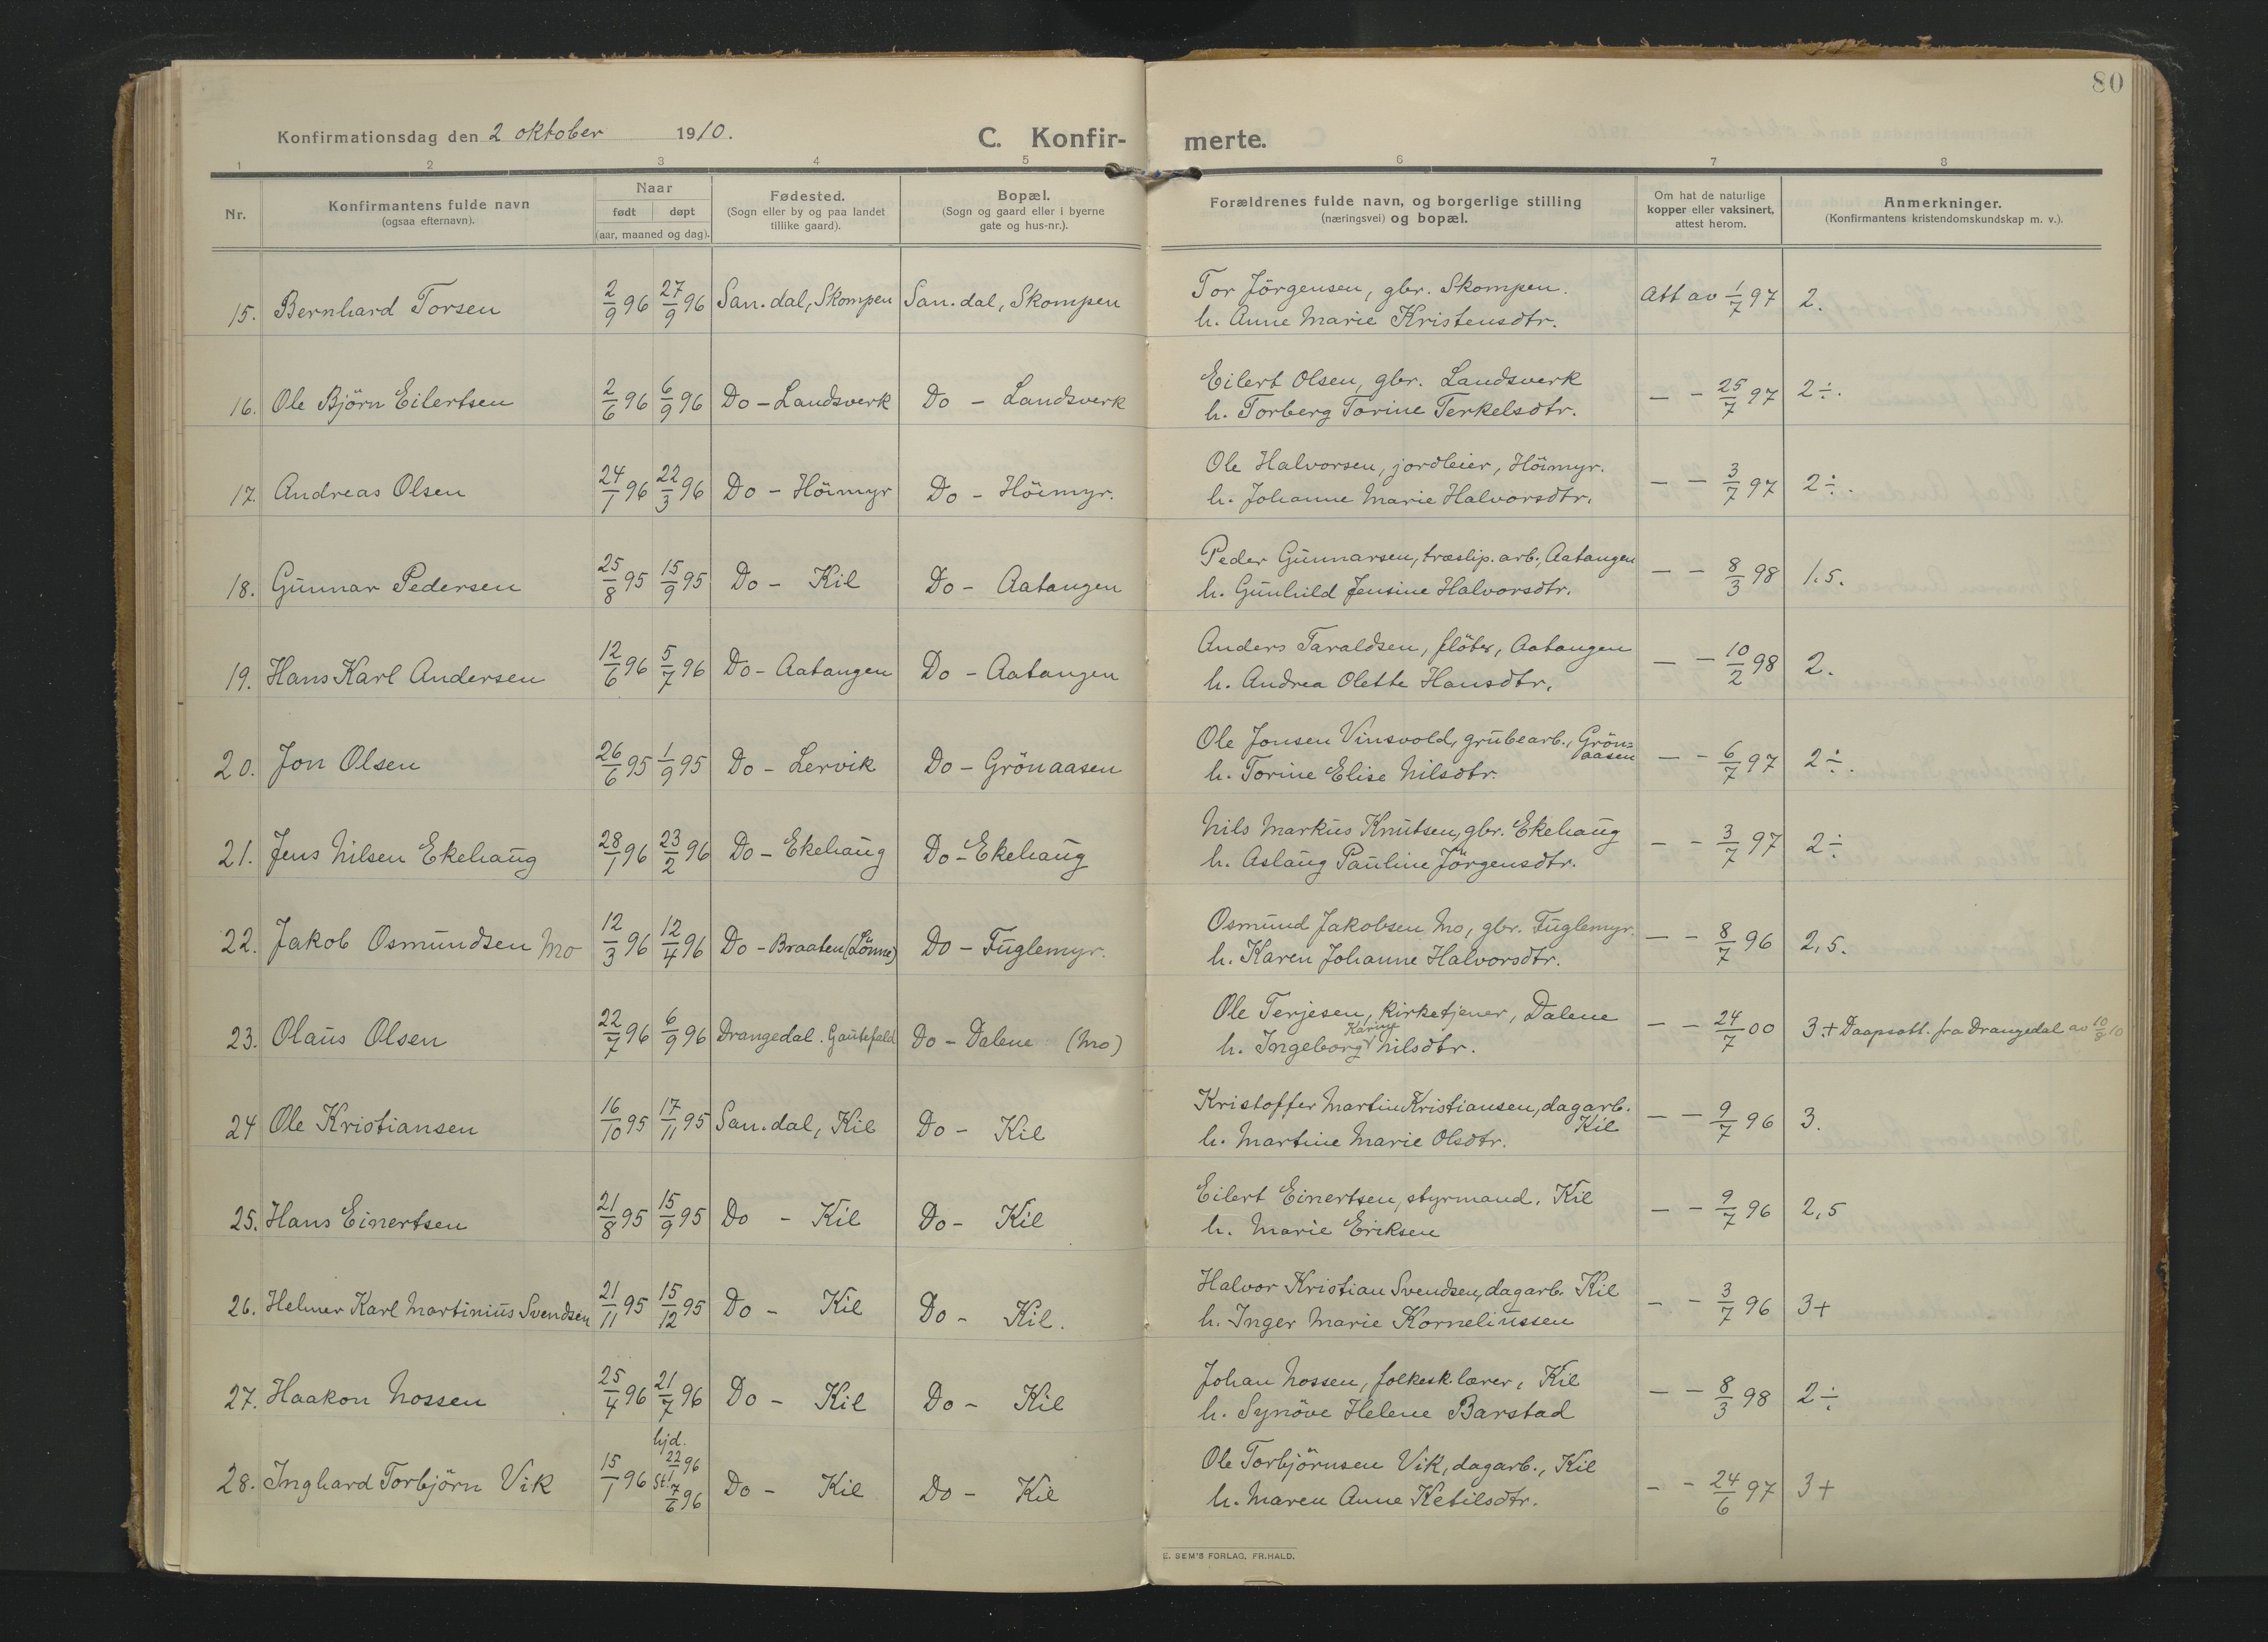 80
Konfirmationsdag den 2 oktober 1910.
C. Konfir- merte.
1 2 3 4 5 6 7 8
Nr.
Konfirmantens fulde navn
(ogsaa efternavn).
Naar
født døpt
(aar, maaned og dag).
Fødested.
(Sogn eller by og paa landet
tillike gaard).
Bopæl.
(Sogn og gaard eller i byerne
gate og hus-nr.).
Forældrenes fulde navn, og borgerlige stilling
(næringsvei) og bopæl.
Om hat de naturlige
kopper eller vaksinert,
attest herom.
Anmerkninger.
(Konfirmantens kristendomskundskap m. v.).
15. Bernhard Torsen 2/9 96 27/9 96 San.dal, Skompen San.dal, Skompen Tor Jörgensen, gbr. Skompen. Att av 1/7 97 2.
h. Anne Marie Kristensdtr.
16. Ole Björn Eilertsen 2/6 96 6/9 96 Do - Landsverk Do - Landsverk Eilert Olsen, gbr. Landsverk - - 25/7 97 2÷.
h. Torberg Torine Terkelsdtr.
17. Andreas Olsen 24/1 96 22/3 96 Do - Höimyr Do - Höimyr. Ole Halvorsen, jordleier, Höimyr. - - 3/7 97 2÷.
h. Johanne Marie Halvorsdtr.
18. Gunnar Pedersen 25/8 95 15/9 95 Do - Kil Do - Aatangen Peder Gunnarsen, træslip. arb., Aatangen - - 8/3 98 1.5.
h. Gunhild Jensine Halvorsdtr.
19. Hans Karl Andersen 12/6 96 5/7 96 Do - Aatangen Do - Aatangen Anders Taraldsen, flöter, Aatangen - - 10/2 98 2.
h. Andrea Olette Hansdtr.
20. Jon Olsen 26/6 95 1/9 95 Do - Lervik Do - Grönaasen Ole Jonsen Vinsvold, grubearb., Grön=
aasen - - 6/7 97 2÷.
h. Torine Elise Nilsdtr.
21. Jens Nilsen Ekehaug 28/1 96 23/2 96 Do - Ekehaug Do - Ekehaug Nils Markus Knutsen, gbr. Ekehaug - - 3/7 97 2÷
h. Aslaug Pauline Jörgensdtr.
22. Jakob Osmundsen Mo 12/3 96 12/4 96 Do - Braaten (Lönne) Do - Fuglemyr. Osmund Jakobsen Mo, gbr. Fuglemyr. - - 8/7 96 2,5.
h. Karen Johanne Halvorsdtr.
23. Olaus Olsen 22/7 96 6/9 96 Drangedal. Gautefald Do - Dalene (Mo) Ole Terjesen, kirketjener, Dalene - - 24/7 00 3.+ Daapsatt. fra Drangedal av 10/8 10
Karine
h. Ingeborg Nilsdtr.
24 Ole Kristiansen 16/10 95 17/11 95 San.dal, Kil Do - Kil Kristoffer Martin Kristiansen, dagarb.
Kil - - 9/7 96 3.
h. Martine Marie Olsdtr.
25. Hans Einertsen 21/8 95 15/9 95 Do - Kil Do - Kil Eilert Einertsen, styrmand, Kil - - 9/7 96 2,5
h. Marie Eriksen
26. Helmer Karl Martinius Svendsen 21/11 95 15/12 95 Do - Kil Do - Kil. Halvor Kristian Svendsen, dagarb. Kil - - 3/7 96 3+
h. Inger Marie Korneliussen
27. Haakon Nossen 25/4 96 21/7 96 Do - Kil Do - Kil Johan Nossen, folkesk.lærer, Kil - - 8/3 98 2÷
h. Synöve Helene Barstad
28. Inghard Torbjörn Vik 15/1 96 hjd. 22/1 96 St. 7/6 96 Do - Kil Do - Kil Ole Torbjörnsen Vik, dagarb., Kil - - 24/6 97 3+
h. Maren Anne Ketilsdtr.
E. SEM'S FORLAG, FR.HALD.